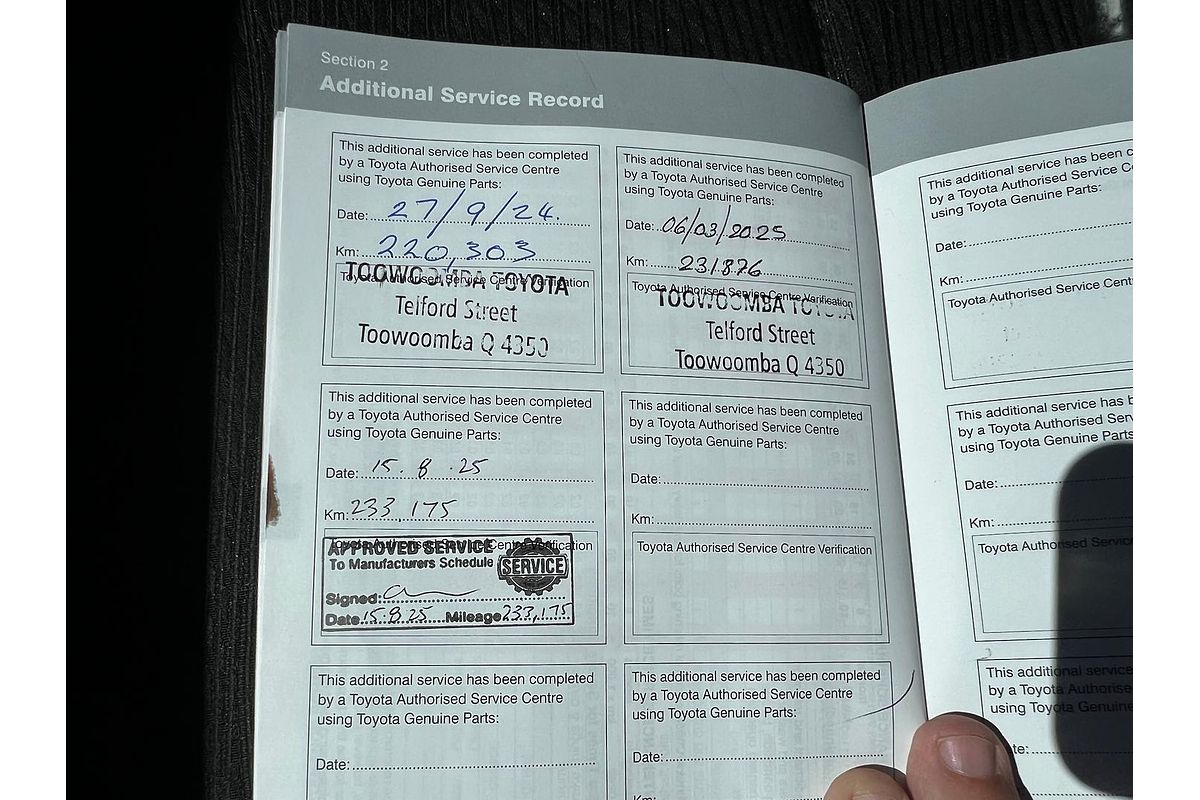 Section 2
Additional Service Record
This additional service has been completed
by a Toyota Authorised Service Centre
using Toyota Genuine Parts:
Date: 27/9/24.
Km: 220,303
Toyota Authorised Service Centre Verification
TOOWOOMBA TOYOTA
Telford Street
Toowoomba Q 4350
This additional service has been completed
by a Toyota Authorised Service Centre
using Toyota Genuine Parts:
Date: 06/03/2025
Km: 231876
Toyota Authorised Service Centre Verification
TOOWOOMBA TOYOTA
Telford Street
Toowoomba Q 4350
This additional service has been completed
by a Toyota Authorised Service Centre
using Toyota Genuine Parts:
Date: 15.8.25
Km: 233,175
Toyota Authorised Service Centre Verification
APPROVED SERVICE
To Manufacturers Schedule
SERVICE
Signed:
Date 15.8.25 Mileage 233,175
This additional service has been completed
by a Toyota Authorised Service Centre
using Toyota Genuine Parts:
Date:
Km:
Toyota Authorised Service Centre Verification
This additional service has been completed
by a Toyota Authorised Service Centre
using Toyota Genuine Parts:
Date:
This additional service has been completed
by a Toyota Authorised Service Centre
using Toyota Genuine Parts:
Date:
Km:
This additional service has been c
by a Toyota Authorised Service C
using Toyota Genuine Parts:
Date:
Km:
Toyota Authorised Service Cent
This additional service has b
by a Toyota Authorised Serv
using Toyota Genuine Parts
Date:
Km:
Toyota Authorised Service
This additional service
by a Toyota Authorise
using Toyota Genuine
te: